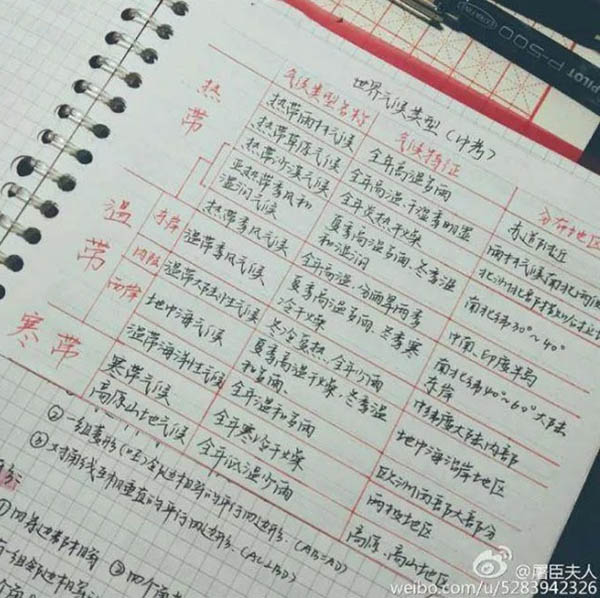 PILOT P-500
世界气候类型（中考）
气候类型名称 气候特征 分布地区
热带
热带雨林气候 全年高温多雨 赤道附近
热带草原气候 全年高温，干湿季明显 雨林气候南北两侧
热带沙漠气候 全年炎热干燥
亚热带季风和湿润气候 夏季高温多雨，冬季温和湿润 南北纬30°~40°
热带季风气候 全年高温，分雨旱两季 中南、印度半岛
温带
东岸 温带季风气候 夏季高温多雨，冬季寒冷干燥 南北纬40°~60°大陆东岸
内陆 温带大陆性气候 冬冷夏热，全年少雨 中纬度大陆内部
西岸 地中海气候 夏季高温干燥，冬季温和多雨 地中海沿岸地区
温带海洋性气候 全年温和多雨 欧洲西部大部分
寒带
寒带气候 全年寒冷干燥 两极地区
高原山地气候 全年低温少雨 高原、高山地区
②一组邻边相等的平行四边形.(AB=AD)
③对角线互相垂直的平行四边形.(AC⊥BD)
①四条边都相等
@屠臣夫人
weibo.com/u/5283942326